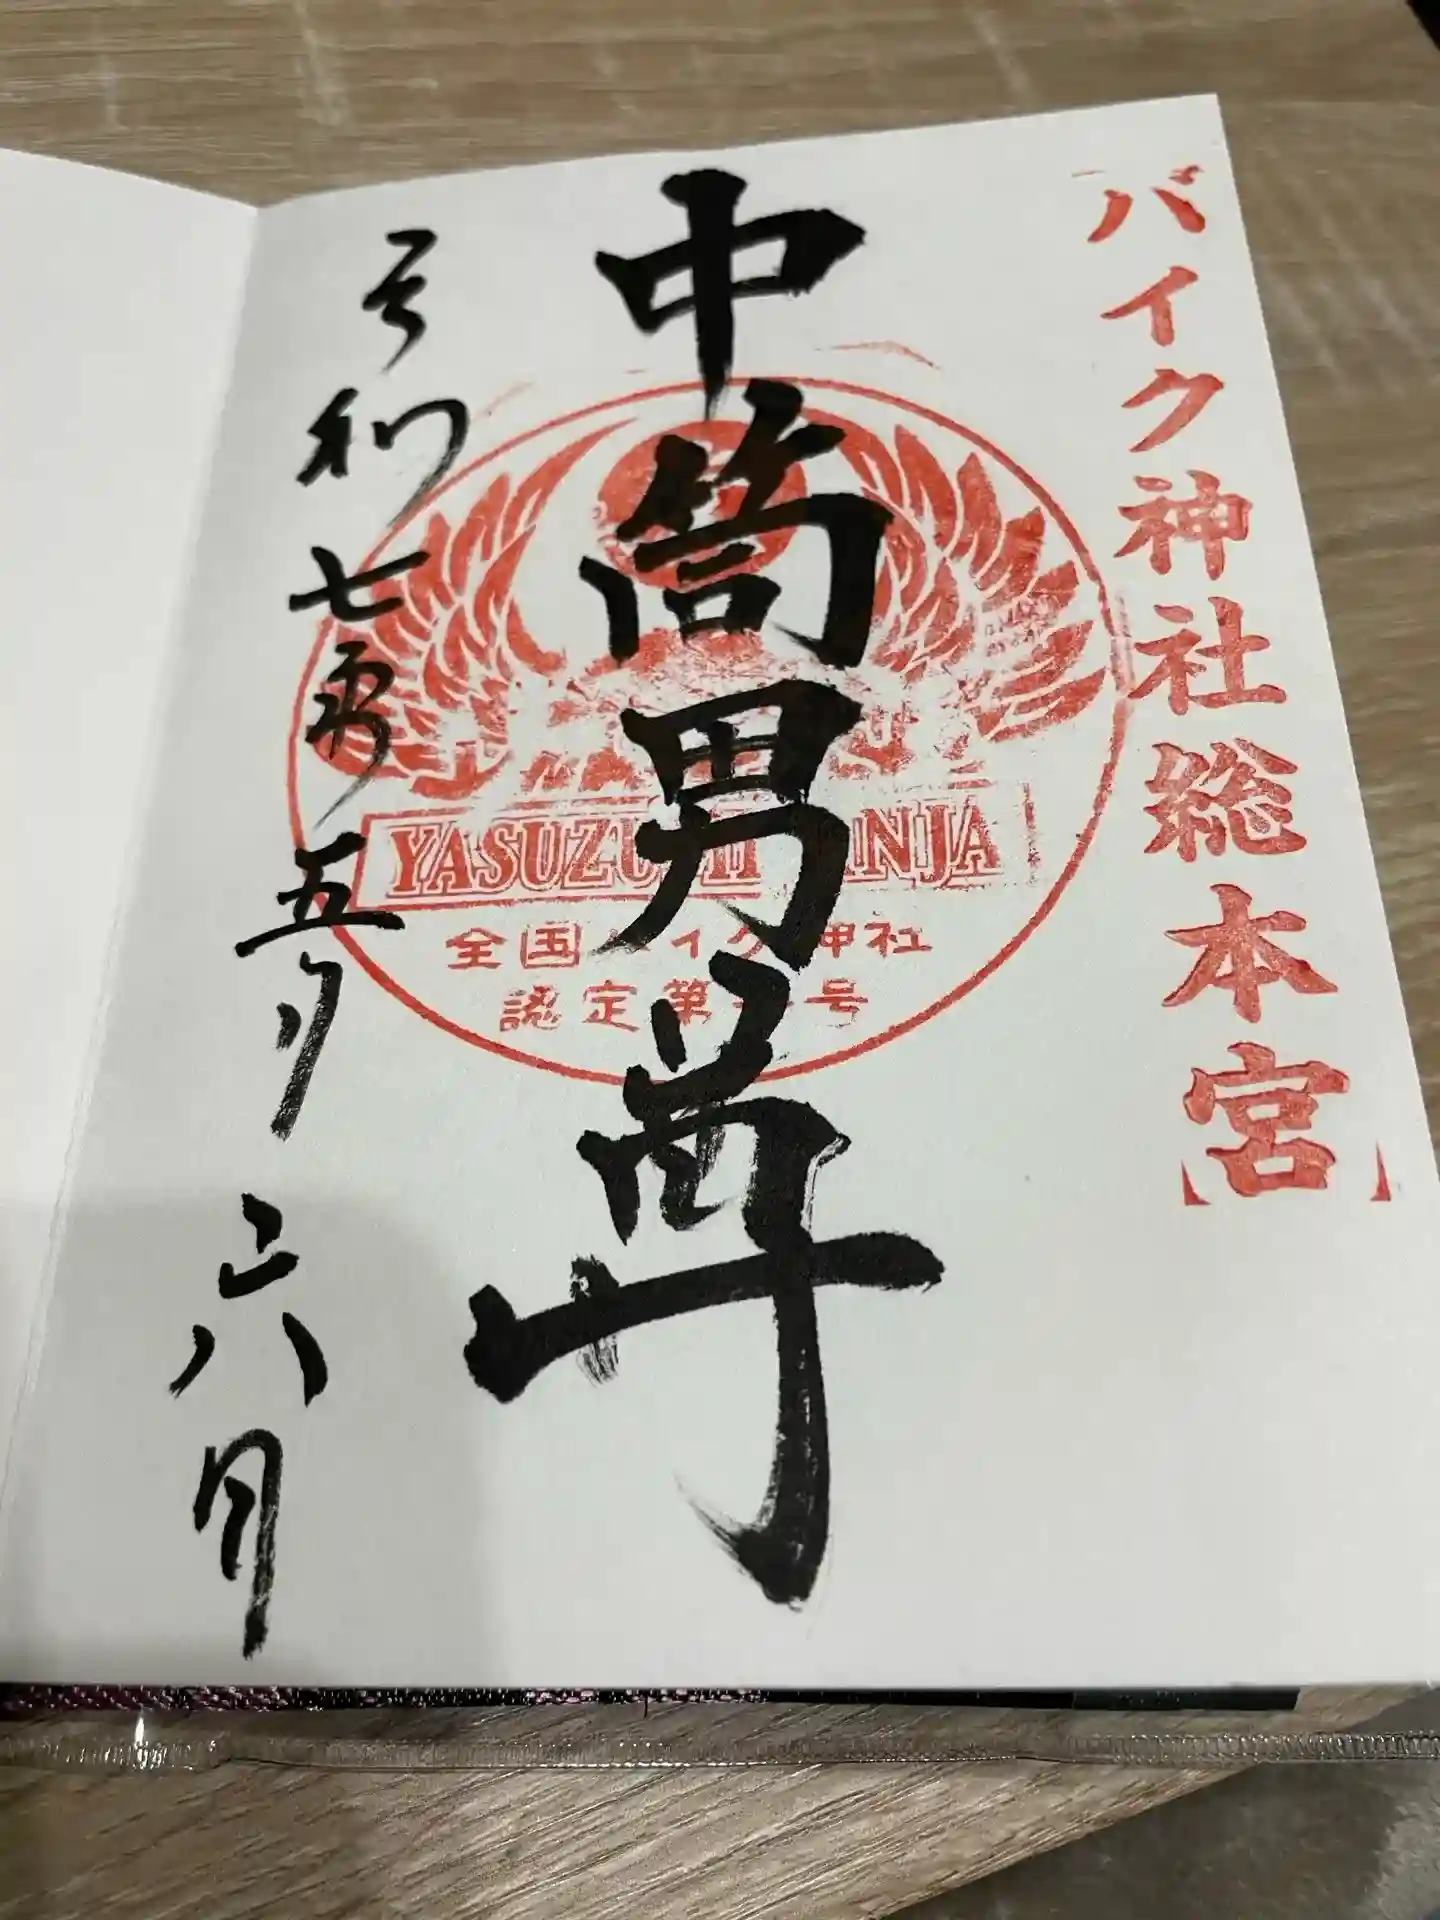 バイク神社総本宮
中筒男尊
YASUZUMI JINJA
全国バイク神社
認定第一号
令和七年五月六日